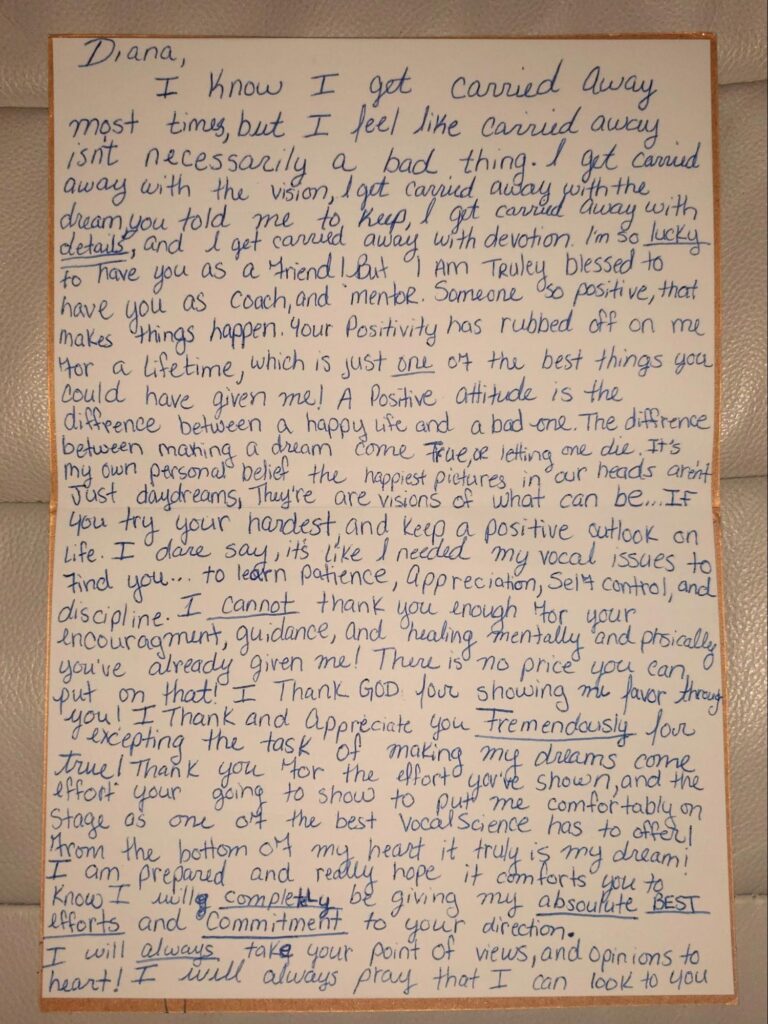 Diana,
I know I get carried away
most times, but I feel like carried away
isn't necessarily a bad thing. I get carried
away with the vision, I get carried away with the
dream you told me to keep, I get carried away with
details, and I get carried away with devotion. I'm so lucky
to have you as a friend! But I AM Truley blessed to
have you as coach, and mentor. Someone so positive, that
makes things happen. Your Positivity has rubbed off on me
for a lifetime, which is just one of the best things you
could have given me! A Positive attitude is the
diffrence between a happy life and a bad one. The diffrence
between making a dream come True, or letting one die. It's
my own personal belief the happiest pictures in our heads aren't
Just daydreams, They're are visions of what can be... If
you try your hardest, and keep a positive outlook on
life. I dare say, it's like I needed my vocal issues to
find you... to learn patience, Appreciation, Self control, and
discipline. I cannot thank you enough for your
encouragment, guidance, and healing mentally and phsically
you've already given me! There is no price you can
put on that! I Thank GOD for showing me favor through
you! I Thank and Appreciate you Tremendously for
excepting the task of making my dreams come
true! Thank you for the effort you've shown, and the
effort your going to show to put me comfortably on
Stage as one of the best Vocal Science has to offer!
From the bottom of my heart it truly is my dream!
I am prepared and really hope it comforts you to
Know I will completly be giving my absoulute BEST
efforts and Commitment to your direction.
I will always take your point of views, and opinions to
heart! I will always pray that I can look to you